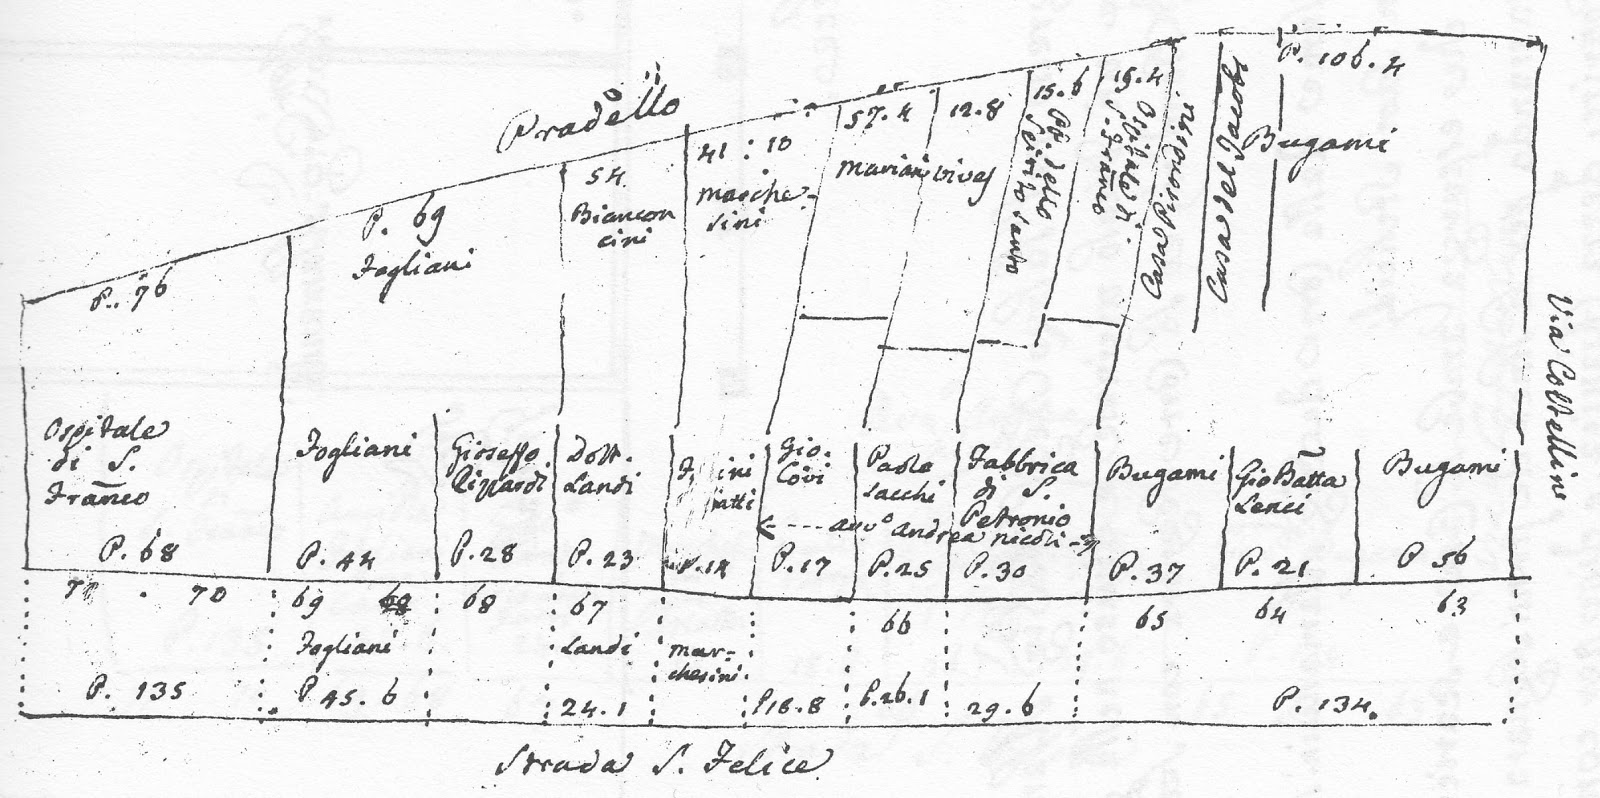 Pradello
P. 106.4
15.4
15.6
12.8
57.4
41:10
54
P. 69
P. 76
Bugami
Casa del Jacobi
Ospitale di
S. Franco
PP. dello
Spirito Santo
Mariani Vives
Marche-
sini
Biancon
cini
Fogliani
Via Coltellini
Ospitale
di S.
Franco
Fogliani
Gioseffo
Rizzardi
Dott.
Landi
Gio.
Covi
Paolo
Sacchi
Fabbrica
di S.
Petronio
Bugami
Gio Batta
Lenci
Bugami
<---- Auvo Andrea Nicoli -->
P. 68
P. 44
P. 28
P. 23
P. 14
P. 17
P. 25
P. 30
P. 37
P. 21
P 56
70
69
68
67
66
65
64
63
Fogliani
Landi
Mar-
chesini
P. 135
P 45.6
24.1
P18.8
P.26.1
29.6
P. 134.
Strada S. Felice